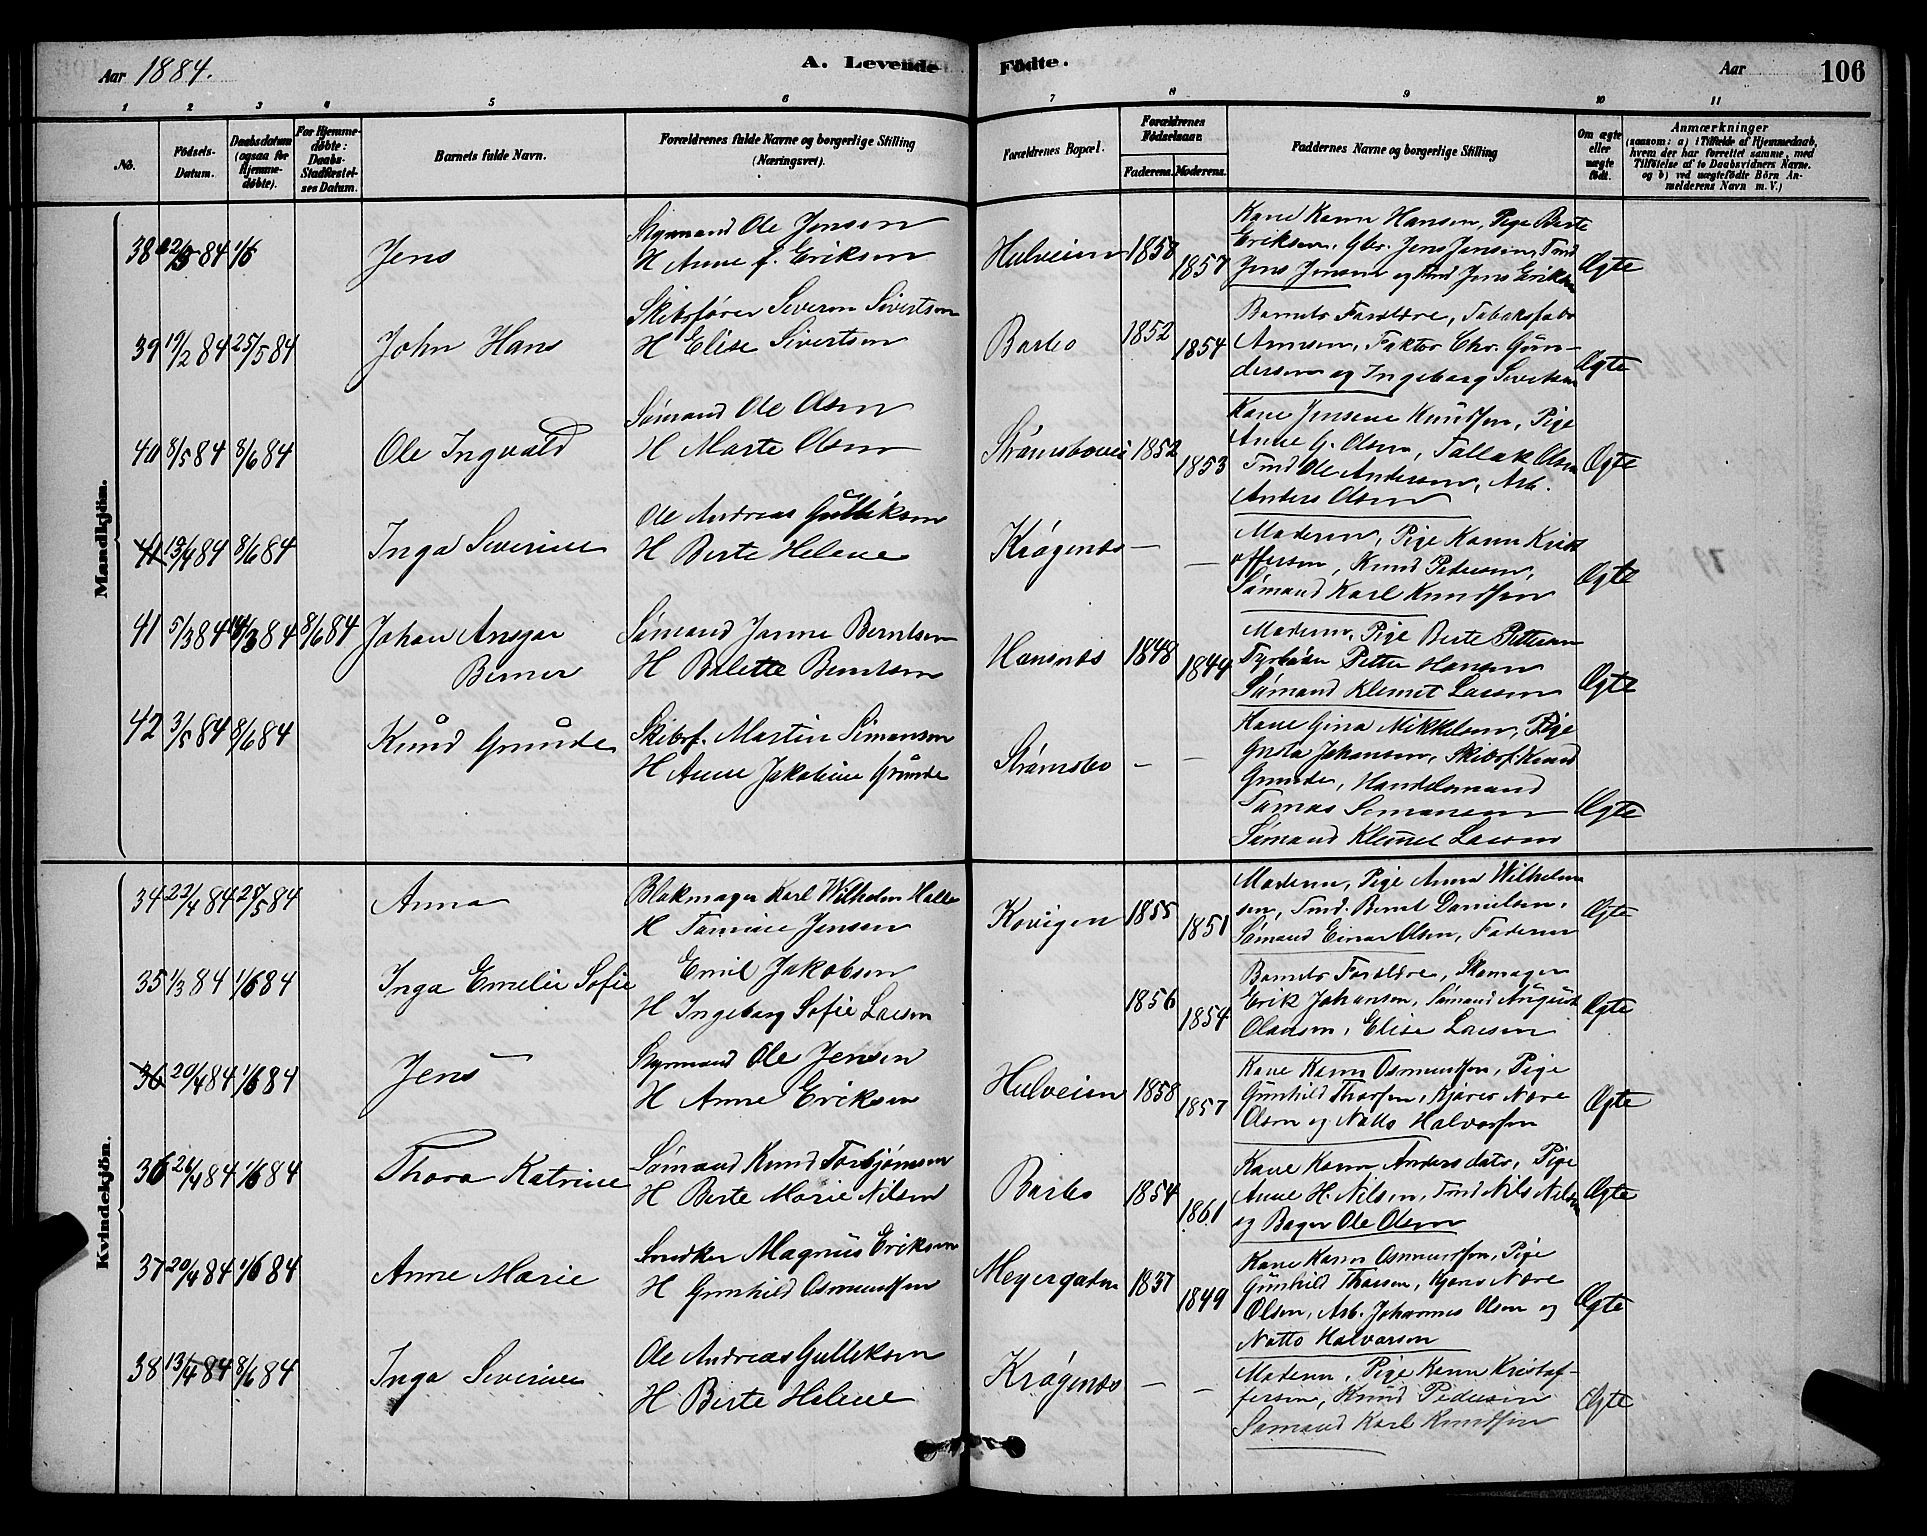 Aar 1884.
A. Levende Fødte.
Aar
106
1 2 3 4 5 6 7 8 9 10 11
No.
Fødsels-Datum.
Daabsdatum (ogsaa for Hjemme-døbte).
For Hjemme-døbte: Daabs-Stadfæstel-ses Datum.
Barnets fulde Navn.
Forældrenes fulde Navne og borgerlige Stilling (Næringsvei).
Forældrenes Bopæl.
Forældrenes Fødselsaar.
Faderens. Moderens.
Faddernes Navne og borgerlige Stilling
Om ægte eller uægte født.
Anmærkninger
(saasom: a) i Tilfælde af Hjemmedaab,
hvem der har forrettet samme, med
Tilføielse af to Daabsvidners Navne.
og b) ved uægtefødte Börn An-
melderens Navn m. V.)
Mandkjön.
38 84 1/6 Jens
Ole Jensen
H Anne f. Eriksen
Hulveien 1858 1857
Kone Karen Hansen, Pige Berte
Eriksen, Gbr. Jens Jensen, Tmd
Jens Jensen og Tmd Jens Eriksen
Ægte
39 19/2 84 25/5 84 John Hans
Skibsfører Severin Sivertsen
H Elise Sivertsen
Barbo 1852 1854
Barnets Forældre, Tobaksfabr
Arnesen, Faktor Chr. Gun-
dersen og Ingeborg Sivertsen
Ægte
40 8/5 84 8/6 84 Ole Ingvald
Sømand Ole Olsen
H Marte Olsen
Strømsboveien 1852 1853
Kone Jensine Knudsen, Pige
Anne G. Olsen, Tallak Olsen
Tmd Ole Andersen, Arb.
Anders Olsen
Ægte
41 13/4 84 8/6 84 Inga Severine
Ole Andreas Gulliksen
H Berte Helene
Krøgenes — —
Moderen, Pige Karen Krist
offersen, Knud Pedersen,
Sømand Karl Knudsen
Ægte
41 5/3 84 14/3 84 8/6 84 Johan Ansgar
Berner
Sømand Berntsen
H Berntsen
Hansnæs 1848 1849
Moderen, Pige Berte
Fyrbøder Petter Hansen
Sømand Klemet Larsen
Ægte
42 3/5 84 8/6 84 Knud Grunde
Skibsf. Martin Simonsen
H Anne Jakobine Grunde
Strømsbo — —
Kone Gina Mikkelsen, Pige
Johansen, Skibsf. Knud
Grunde, Handelsmand
Tomas Simonsen
Sømand Klemet Larsen
Ægte
Kvindekjön.
34 22/4 84 25/5 84 Anna
Blokmager Karl Wilhelm Halle
H Tomine Jensen
Kovigen 1855 1851
Moderen, Pige Anna Wilhelm
sen, Tmd. Bernt Danielsen,
Sømand Einar Olsen, Faderen
Ægte
35 1/3 84 1/6 84 Inga Emelie Sofie
Emil Jakobsen
H Ingeborg Sofie Larsen
1856 1854
Barnets Forældre, Skomager
Erik Johansen, Sømand August
Olausen, Elise Larsen
Ægte
36 20/4 84 1/6 84 Jens
Ole Jensen
H Anne Eriksen
Hulveien 1858 1857
Kone Karen Osmundsen, Pige
Gunhild Thorsen, Kjører Nære
Olsen og Notto Halvorsen
Ægte
36 26/4 84 1/6 84 Thora Katrine
Sømand Knud Torbjørnsen
H Berte Marie Nilsen
Barbo 1854 1861
Kone Karen Andersdatr, Pige
Anne H. Nilsen, Tmd Nils Nilsen
og Bager Ole Olsen
Ægte
37 20/4 84 1/6 84 Anne Marie
Snedker Magnus Eriksen
H Gunhild Osmundsen
Meyergaden 1837 1849
Kone Karen Osmundsen, Pige
Gunhild Thorsen, Kjører Nære
Olsen, Arb. Johannes Olsen og
Notto Halvorsen
Ægte
38 13/4 84 8/6 84 Inga Severine
Ole Andreas Gulliksen
H Berte Helene
Krøgenes — —
Moderen, Pige Karen Kristof-
fersen, Knud Pedersen
Sømand Karl Knudsen
Ægte